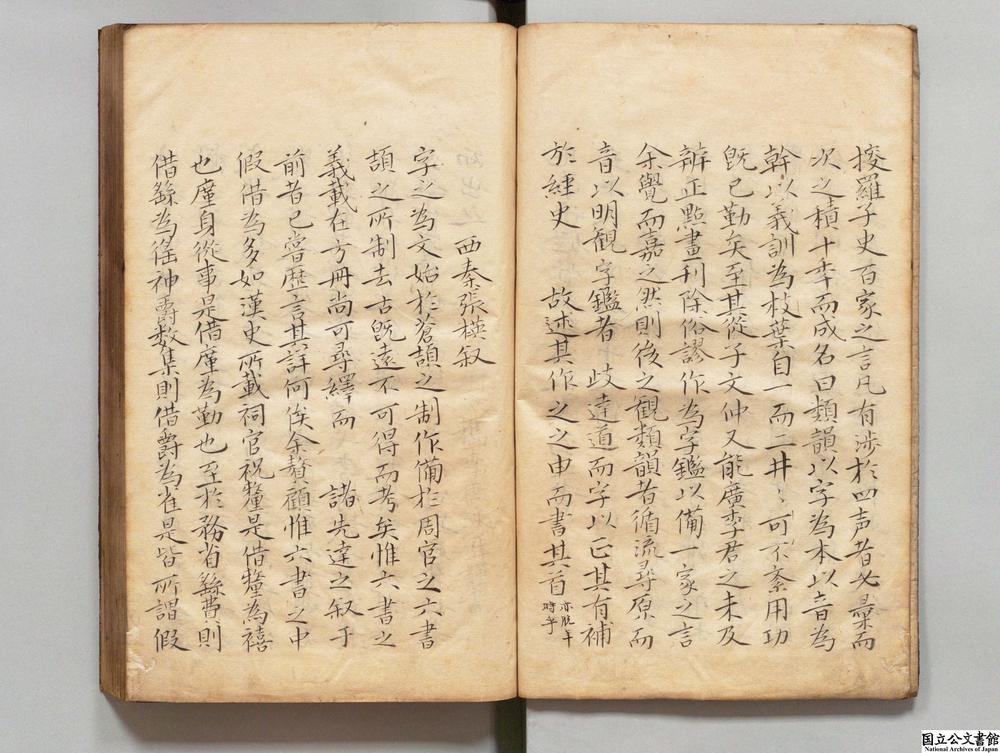 搜羅子史百家之言凡有涉於四声者必彙而
次之積十年而成名曰類韻以字為本以音為
幹以義訓為枝葉自一而二井〻可不紊用功
既已勤矣至其從子文仲又能廣李君之未及
辨正點畫刊除俗謬作為字鑑以備一家之言
余覺而嘉之然則後之観類韻者循流尋原而
音以明観字鑑者　歧達道而字以正其有補
於經史　　故述其作之之由而書其首亦脱年時乎
西秦張楧叙
字之為文始於蒼頡之制作備於周官之六書
頡之所制去古既遠不可得而考矣惟六書之
義載在方冊尚可尋繹而　諸先達之叙于
前者已嘗歷言其詳何俟余贅顧惟六書之中
假借為多如漢史所載祠官祝釐是借釐為禧
也廑身從事是借廑為勤也至於務省繇費則
借繇為徭神爵數集則借爵為雀是皆所謂假
国立公文書館
National Archives of Japan